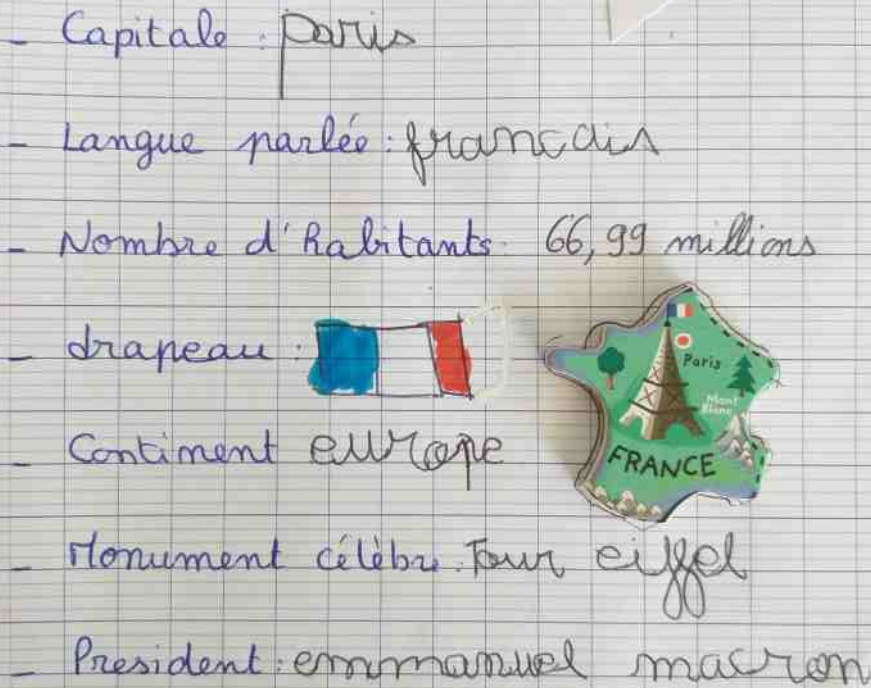 - Capitale : paris
- Langue parlée : francais
- Nombre d'habitants. 66,99 millions
- drapeau :
Paris
Mont
Blanc
FRANCE
- Continent europe
- Monument célèbre. Tour eiffel
- President : emmanuel macron